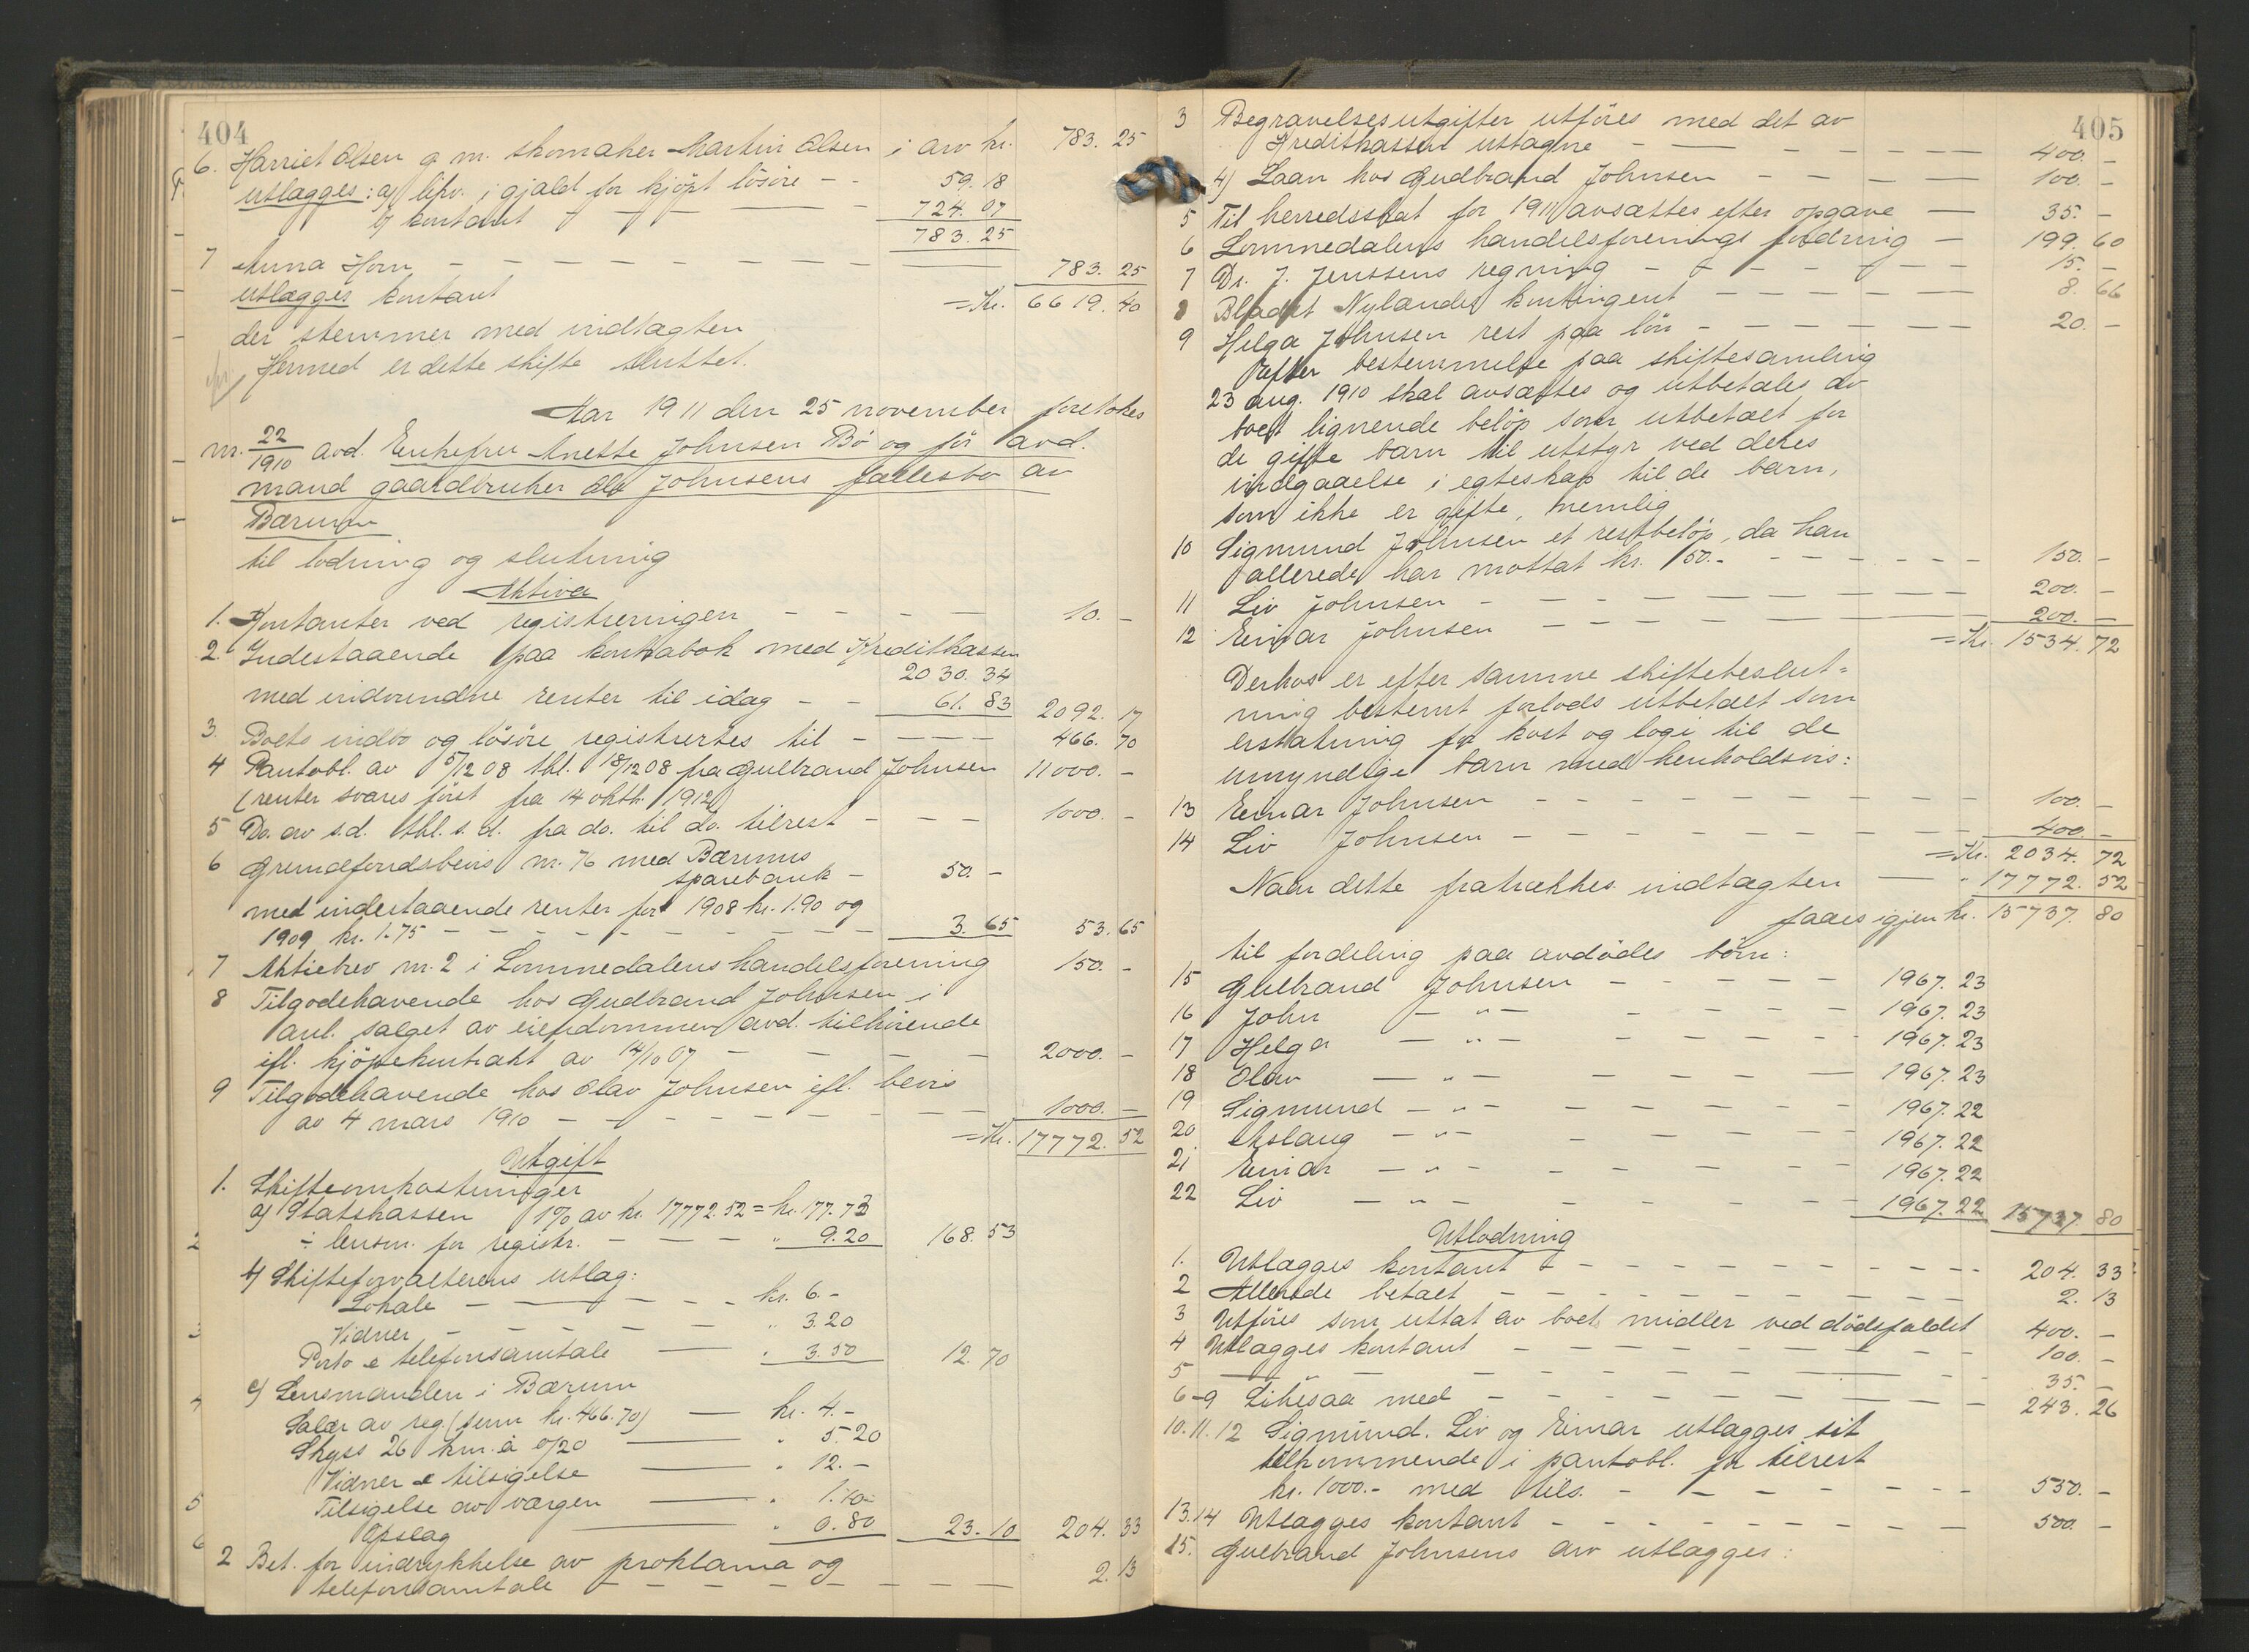 404
6. Harriet Olsen g. m. skomaker Martin Olsen i arv kr. 783. 25
utlægges: a) i gjæld for kjøpt løsøre – – 59. 18
b) kontant – – – – 724. 07
783. 25
7 Anna Horn – – – – – – 783. 25
utlægges kontant
= Kr. 6619. 40
der stemmer med indtægten
Hermed er dette skifte sluttet.
Aar 1911 den 25 november foretokes
nr. 22/1910 avd. Enkefru Anette Johnsen Bø og før avd.
mand gaardbruker Ole Johnsens fællesbo av
Bærum
til lodning og slutning
Aktiva
1. Kontanter ved registreringen – – – – 10. –
2. Indestaaende paa kontrabok med Kreditkassen
2030. 34
med indvundne renter til idag – – 61. 83 2092. 17
3. Boets indbo og løsøre registrertes til – – – – 466. 70
4 Pantobl. av 5/12 08 tbl. 18/12 08 fra Gulbrand Johnsen 11000. –
(renter svares først fra 14 oktbr. 1912)
5 Do. av s.d. tbl. s.d. fra do. til do. tilrest – – – 1000. –
6 Grundfondsbevis nr. 76 med Bærums
sparebank – 50. –
med indestaaende renter for 1908 kr. 1.90 og
1909 kr. 1.75 – – – – – – – 3. 65 53. 65
7 Aktiebrev nr. 2 i Lommedalens handelsforening 150. –
8 Tilgodehavende hos Gudbrand Johnsen i
anl. salget av eiendommen avd. tilhørende
ifl. kjøpekontrakt av 14/10 07 – – – – 2000. –
9 Tilgodehavende hos Olav Johnsen ifl. bevis
av 4 mars 1910 – – – – – – – 1000. –
= Kr. 17772. 52
Utgift
1. Skifteomkostninger
a) Statskassen 1% av kr. 17772.52 = kr. 177.73
÷ lensm. for registr. – – – „ 9.20 168. 53
b) Skifteforvalterens utlæg:
Lokale – – – – – kr. 6. –
Vidner – – – – – „ 3.20
Porto & telefonsamtale – „ 3.50 12. 70
c) Lensmanden i Bærum
Salær av reg. (sum kr. 466.70) – kr. 4. –
Skyss 26 km. à 0/20 – „ 5.20
Vidner & tilsigelse – „ 12. –
Tilsigelse av værgen – „ 1.10
Opslag – „ 0.80 23. 10 204. 33
2 Bet. for indrykkelse av proklama og
telefonsamtale – – – – – – – 2. 13
405
3 Begravelsesutgifter utføres med det av
Kreditkassen uttagne – – – – – – 400. –
4) Laan hos Gudbrand Johnsen – – – – 100. –
5 Til herredsskat for 1911 avsættes efter opgave – 35. –
6 Lommedalens handelsforenings fordring – 199. 60
7 Dr. J. Jenssens regning – – – – – 15. –
8 Bladet Nylandes kontingent – – – – 8. 66
9 Helga Johnsen rest paa løn – – – – – 20. –
Efter bestemmelse paa skiftesamling
23 aug. 1910 skal avsættes og utbetales av
boet lignende beløp som utbetalt for
de gifte barn til utstyr ved deres
indgaaelse i egteskap til de barn,
som ikke er gifte, nemlig
10 Sigmund Johnsen et restbeløp, da han
allerede har mottat kr. 50.- – – – – – 150. –
11 Liv Johnsen – – – – – – – – 200. –
12 Einar Johnsen – – – – – – – 200. –
= Kr. 1534. 72
Derhos er efter samme skiftebeslut=
ning bestemt forlods utbetalt som
erstatning for kost og logi til de
umyndige barn med henholdsvis:
13 Einar Johnsen – – – – – – – 100. –
14 Liv Johnsen – – – – – – – – 400. –
= Kr. 2034. 72
Naar dette fratrækkes indtægten – „ 17772. 52
faaes igjen kr. 15737. 80
til fordeling paa avdødes børn:
15 Gulbrand Johnsen – – – – – 1967. 23
16 John – „ – – – – – 1967. 23
17 Helga – „ – – – – – 1967. 23
18 Olav – „ – – – – – 1967. 23
19 Sigmund – „ – – – – – 1967. 22
20 Aslaug – „ – – – – – 1967. 22
21 Einar – „ – – – – – 1967. 22
22 Liv – „ – – – – – 1967. 22 15737. 80
Utlodning
1. Utlægges kontant – – – – – – – – 204. 33
2 Allerede betalt – – – – – – – – 2. 13
3 Utføres som uttat av boets midler ved dødsfaldet 400. –
4 Utlægges kontant – – – – – – – 100. –
5 – – – – – – – – – 35. –
6–9 Likesaa med – – – – – – – 243. 26
10. 11. 12 Sigmund, Liv og Einar utlægges sit
tilkommende i pantobl. for tilrest
kr. 1000.- med tils. – – – – – – 550. –
13. 14 Utlægges kontant – – – – – – – 500. –
15. Gulbrand Johnsens arv utlægges: